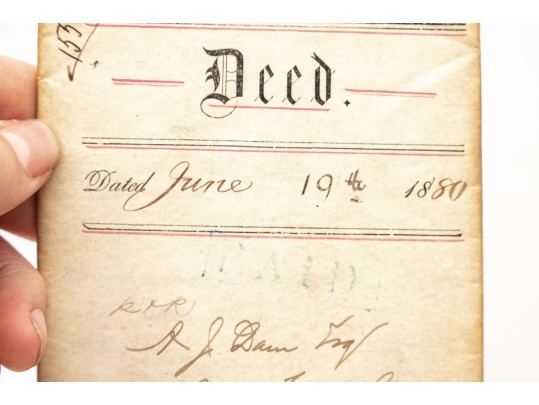 155
Deed.
Dated June 19th 1880
R & R
A J Dam Esq